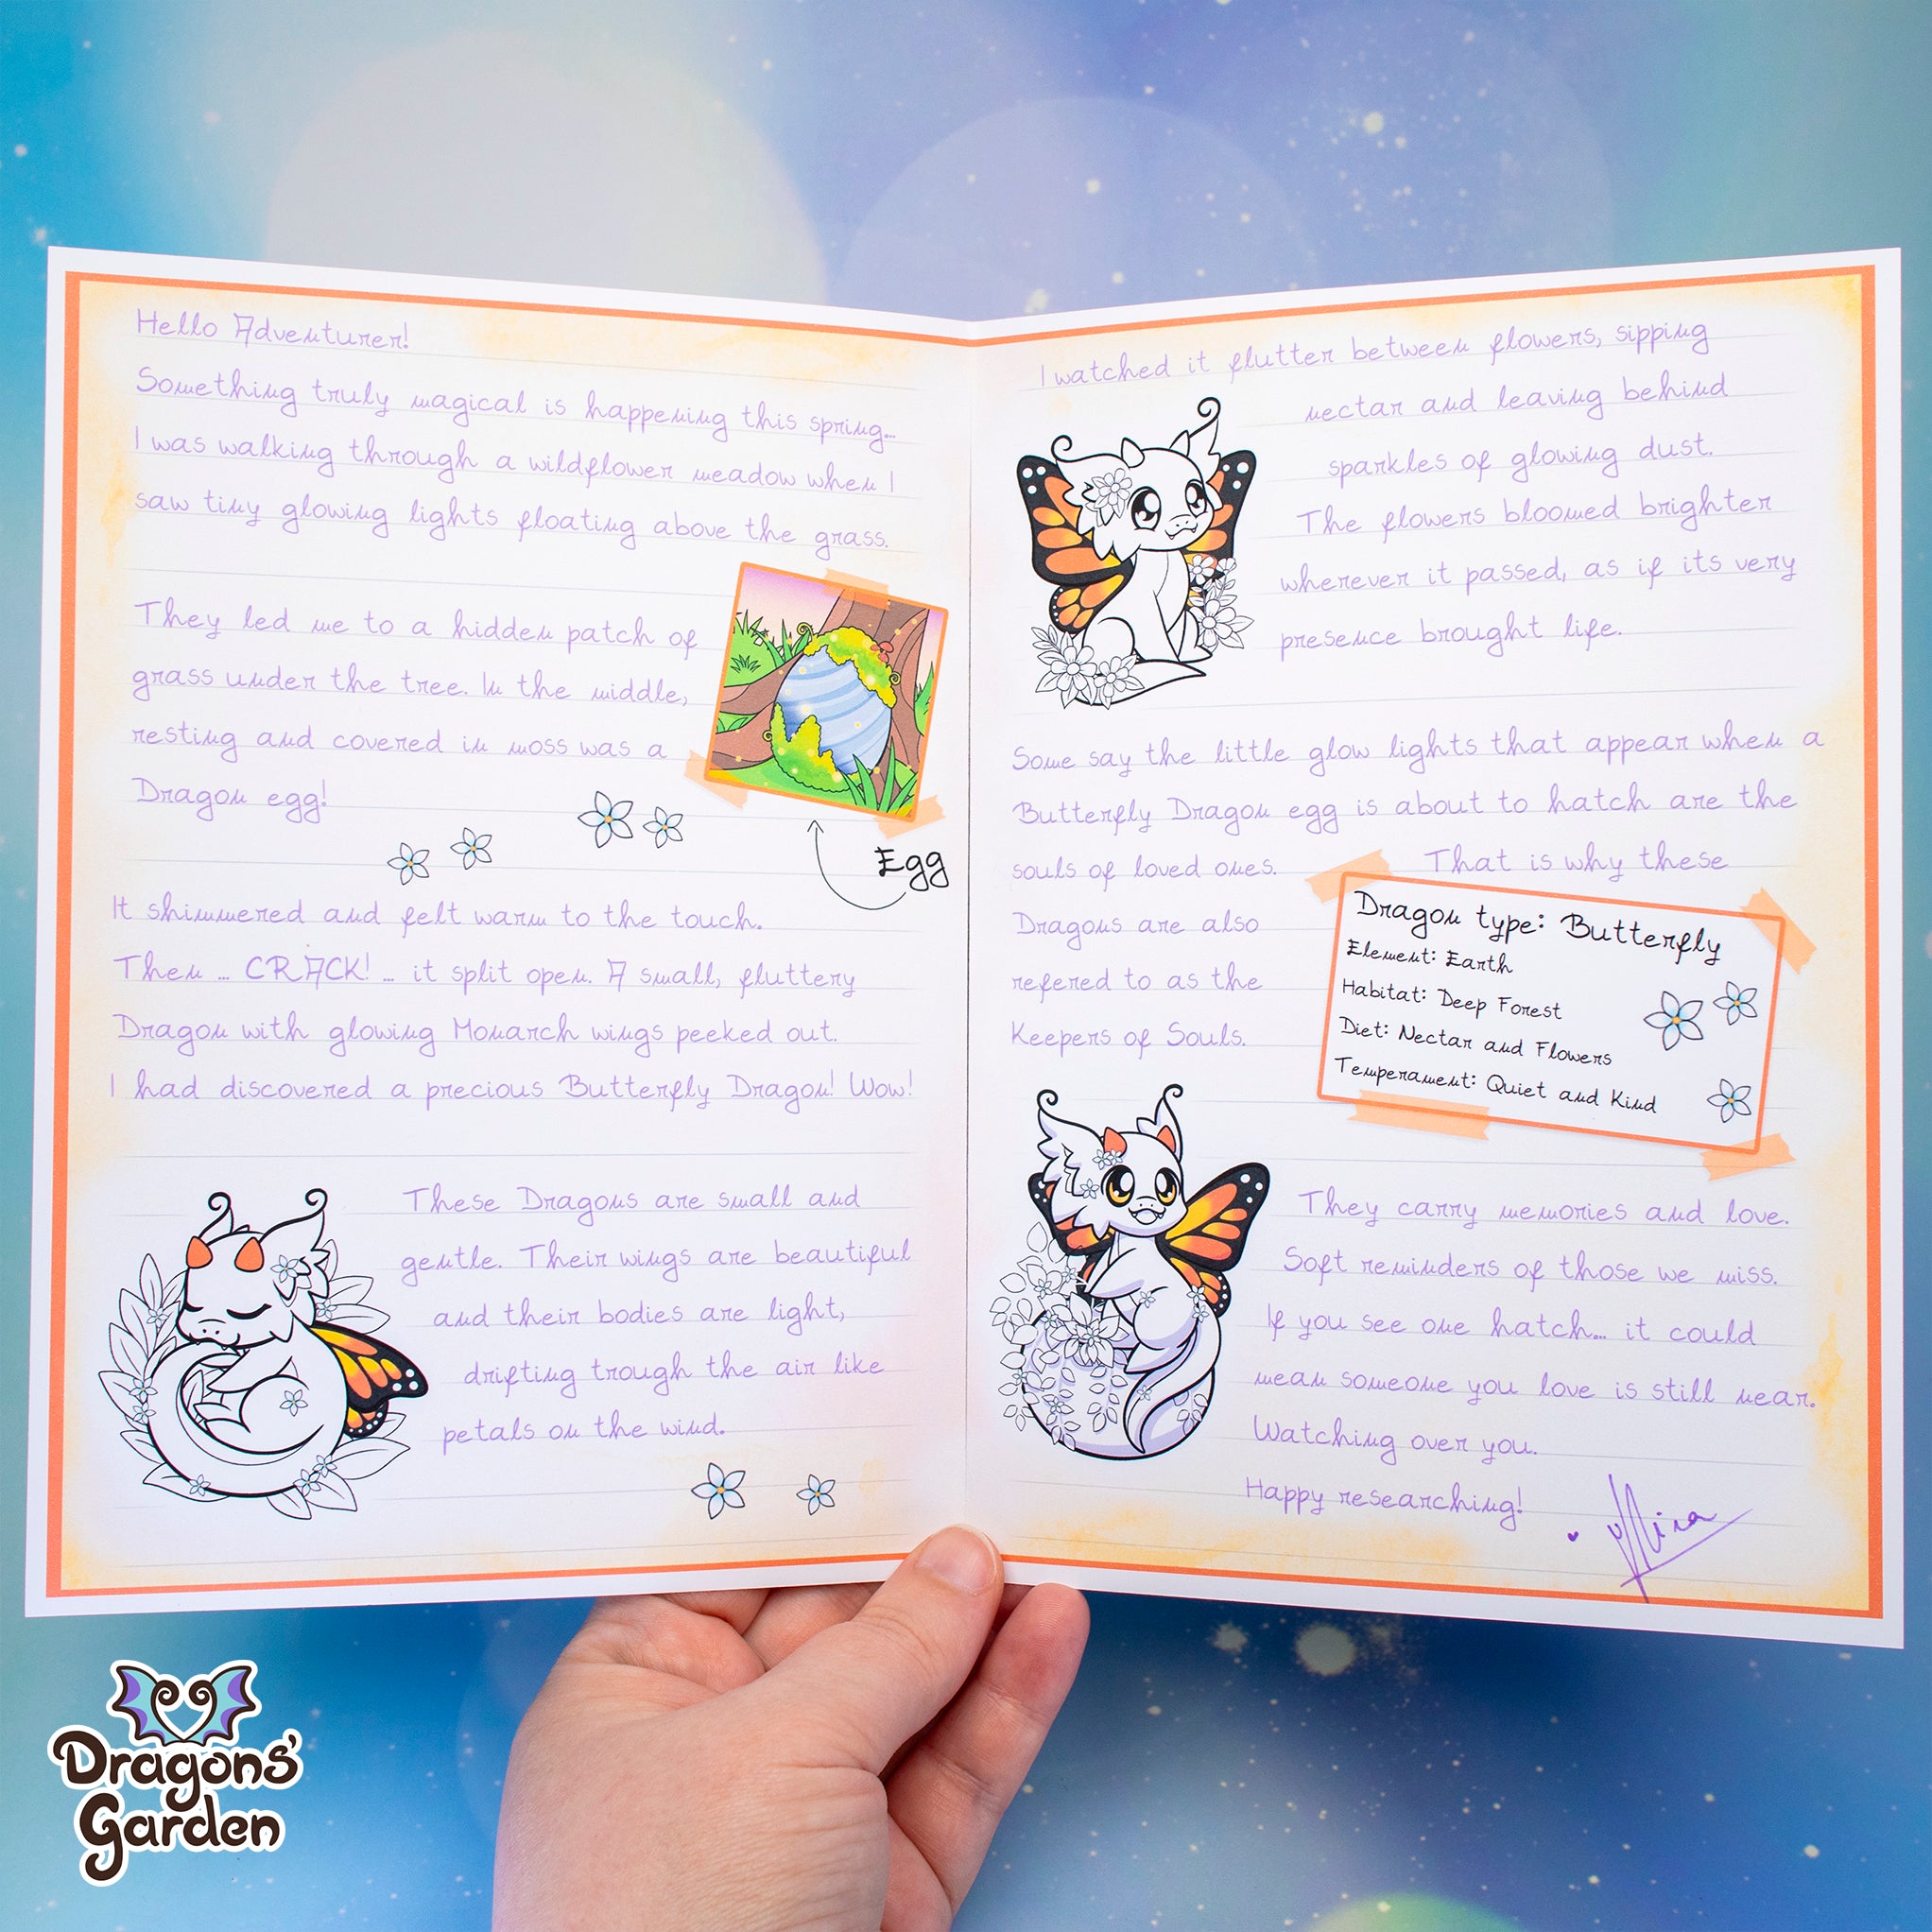 Hello Adventurer!
Something truly magical is happening this spring...
I was walking through a wildflower meadow when I
saw tiny glowing lights floating above the grass.
They led me to a hidden patch of
grass under the tree. In the middle,
resting and covered in moss was a
Dragon egg!
Egg
It shimmered and felt warm to the touch.
Then ... CRACK! ... it split open. A small, fluttery
Dragon with glowing Monarch wings peeked out.
I had discovered a precious Butterfly Dragon! Wow!
These Dragons are small and
gentle. Their wings are beautiful
and their bodies are light,
drifting trough the air like
petals on the wind.
I watched it flutter between flowers, sipping
nectar and leaving behind
sparkles of glowing dust.
The flowers bloomed brighter
wherever it passed, as if its very
presence brought life.
Some say the little glow lights that appear when a
Butterfly Dragon egg is about to hatch are the
souls of loved ones. That is why these
Dragons are also
refered to as the
Keepers of Souls.
Dragon type: Butterfly
Element: Earth
Habitat: Deep Forest
Diet: Nectar and Flowers
Temperament: Quiet and Kind
They carry memories and love.
Soft reminders of those we miss.
If you see one hatch... it could
mean someone you love is still near.
Watching over you.
Happy researching!
Mira
Dragons'
Garden